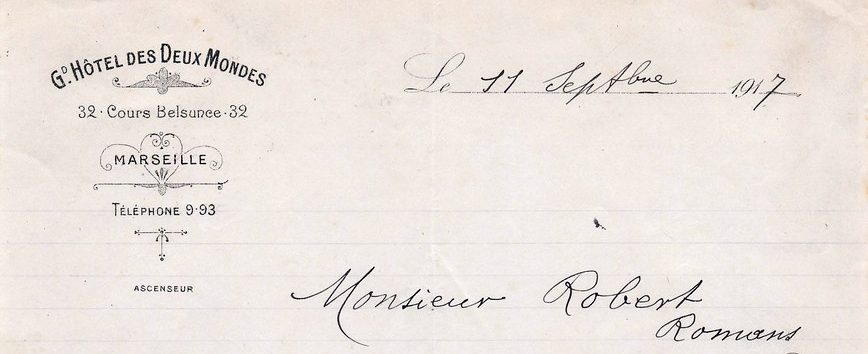 Gᴰ. HÔTEL DES DEUX MONDES
32 · Cours Belsunce · 32
MARSEILLE
TÉLÉPHONE 9·93
ASCENSEUR
Le 11 Septbre 1917
Monsieur Robert
Romans